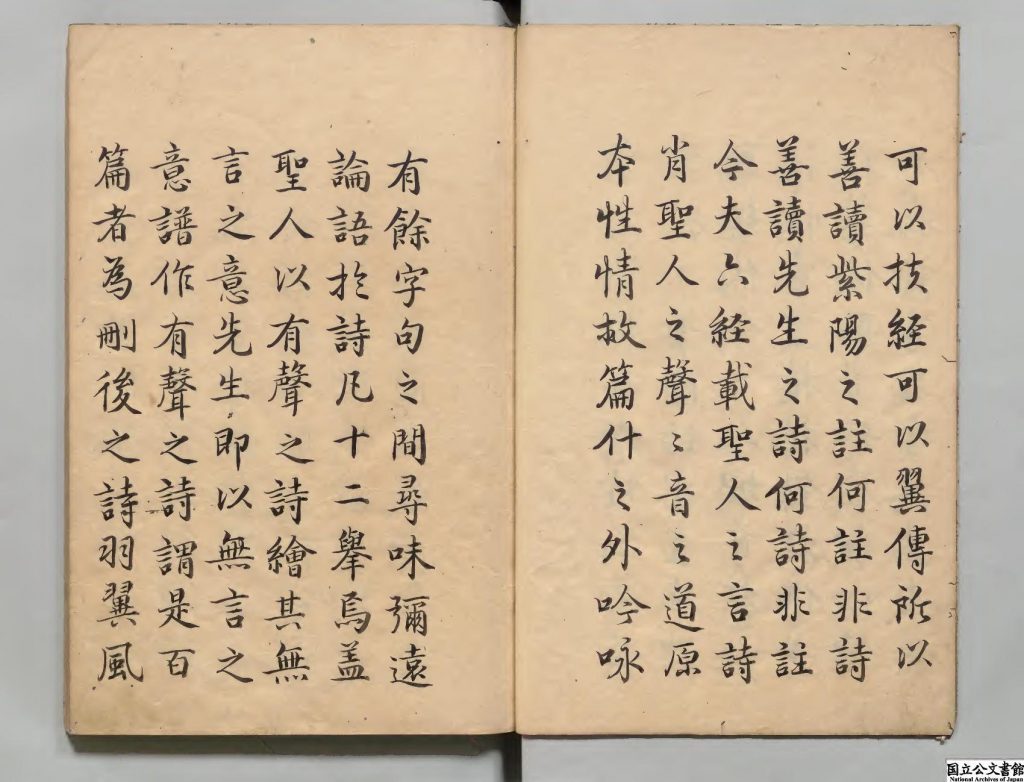 可以扶経可以翼傳所以
善讀紫陽之註何註非詩
善讀先生之詩何詩非註
今夫六経載聖人之言詩
肖聖人之聲〻音之道原
本性情故篇什之外吟咏
有餘字句之間尋味彌遠
論語於詩凡十二舉焉盖
聖人以有聲之詩繪其無
言之意先生即以無言之
意譜作有聲之詩謂是百
篇者為刪後之詩羽翼風
国立公文書館
National Archives of Japan